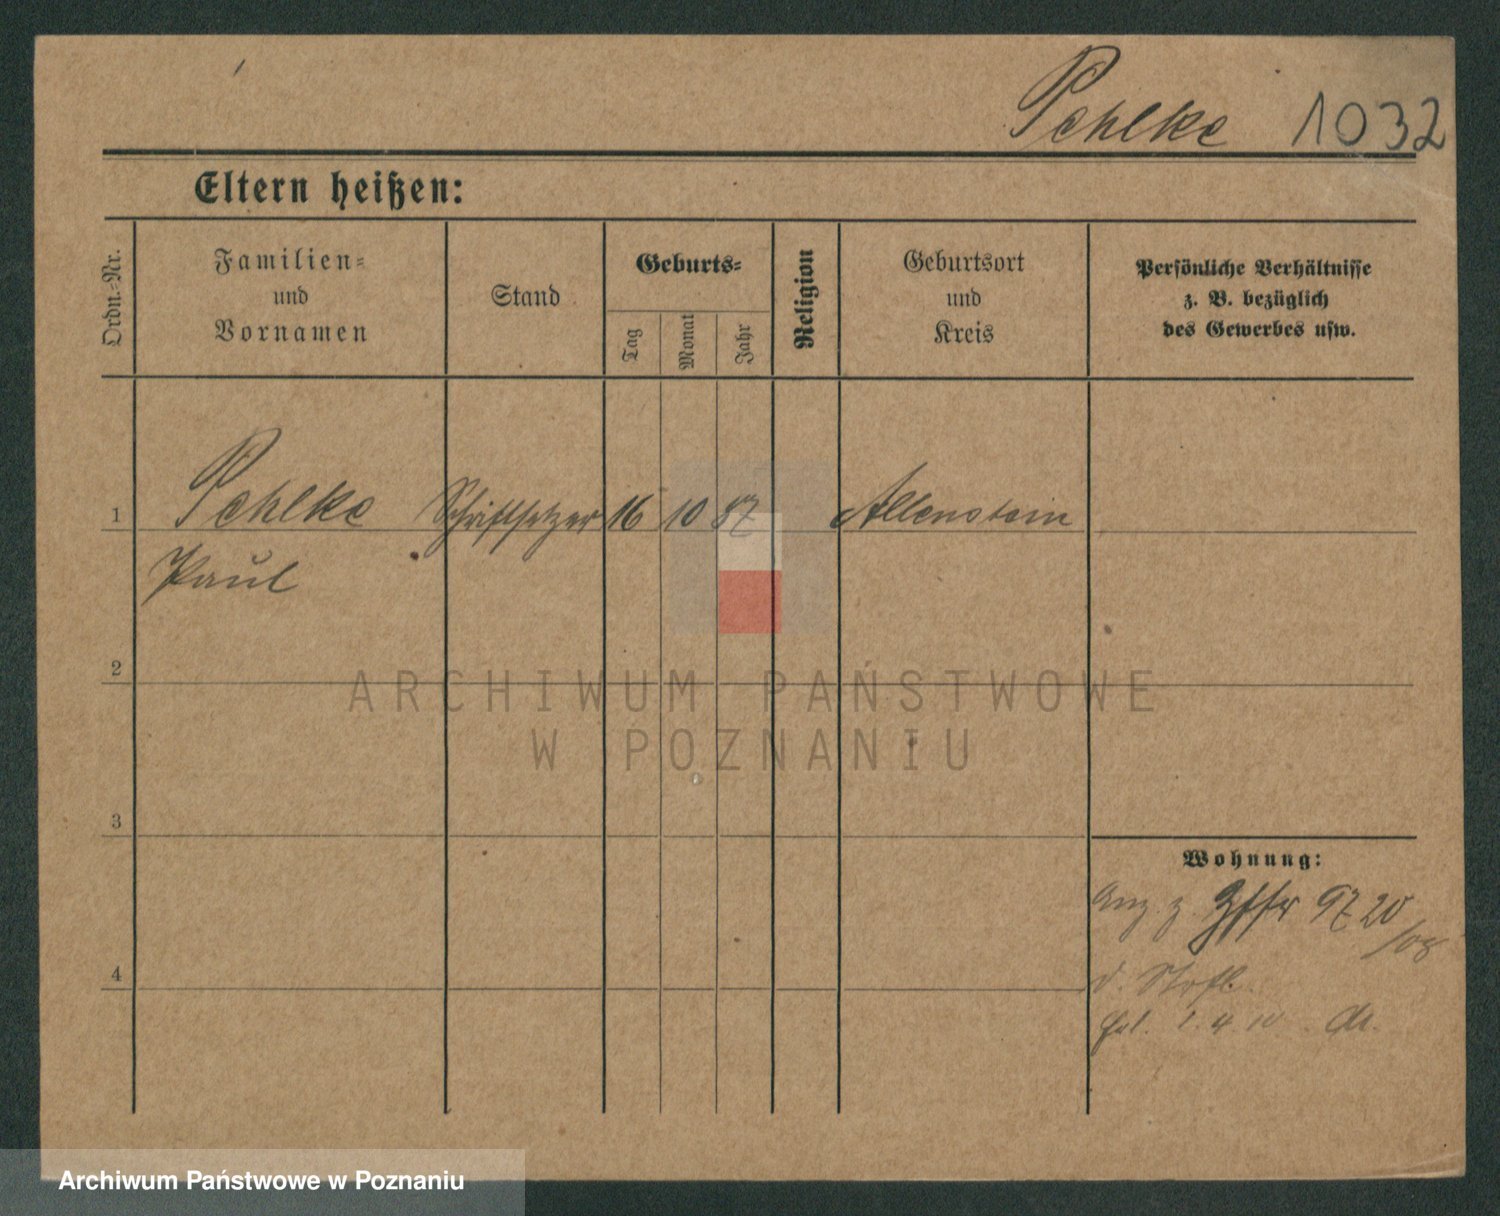 Pehlke 1032
Eltern heißen:
Ordn.-Nr.
Familien-
und
Vornamen
Stand
Geburts-
Tag
Monat
Jahr
Religion
Geburtsort
und
Kreis
Persönliche Verhältnisse
z. B. bezüglich
des Gewerbes usw.
1 Pehlke Schriftsetzer 16 10 87 Allenstein
Paul
2
3
4
Wohnung:
9720
/08
ARCHIWUM PAŃSTWOWE
W POZNANIU
Archiwum Państwowe w Poznaniu